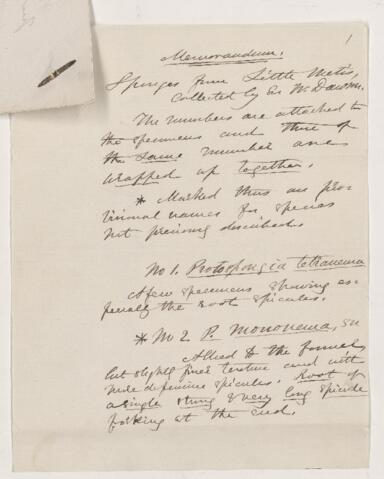 1
Memorandum.
Sponges from Little Metis,
Collected by Sir W. Dawson.
The numbers are attached to
the specimens and those of
the same number are
wrapped up together.
* Marked thus are pro-
visional names for species
not previously described.
No 1. Protospongia tetranema
A few specimens showing es-
pecially the root spicules.
* No 2 P. mononema, sn
Allied to the former,
but slightly finer texture and with
more defensive spicules. Root of
a single strong & very long spicule
forking at the end.